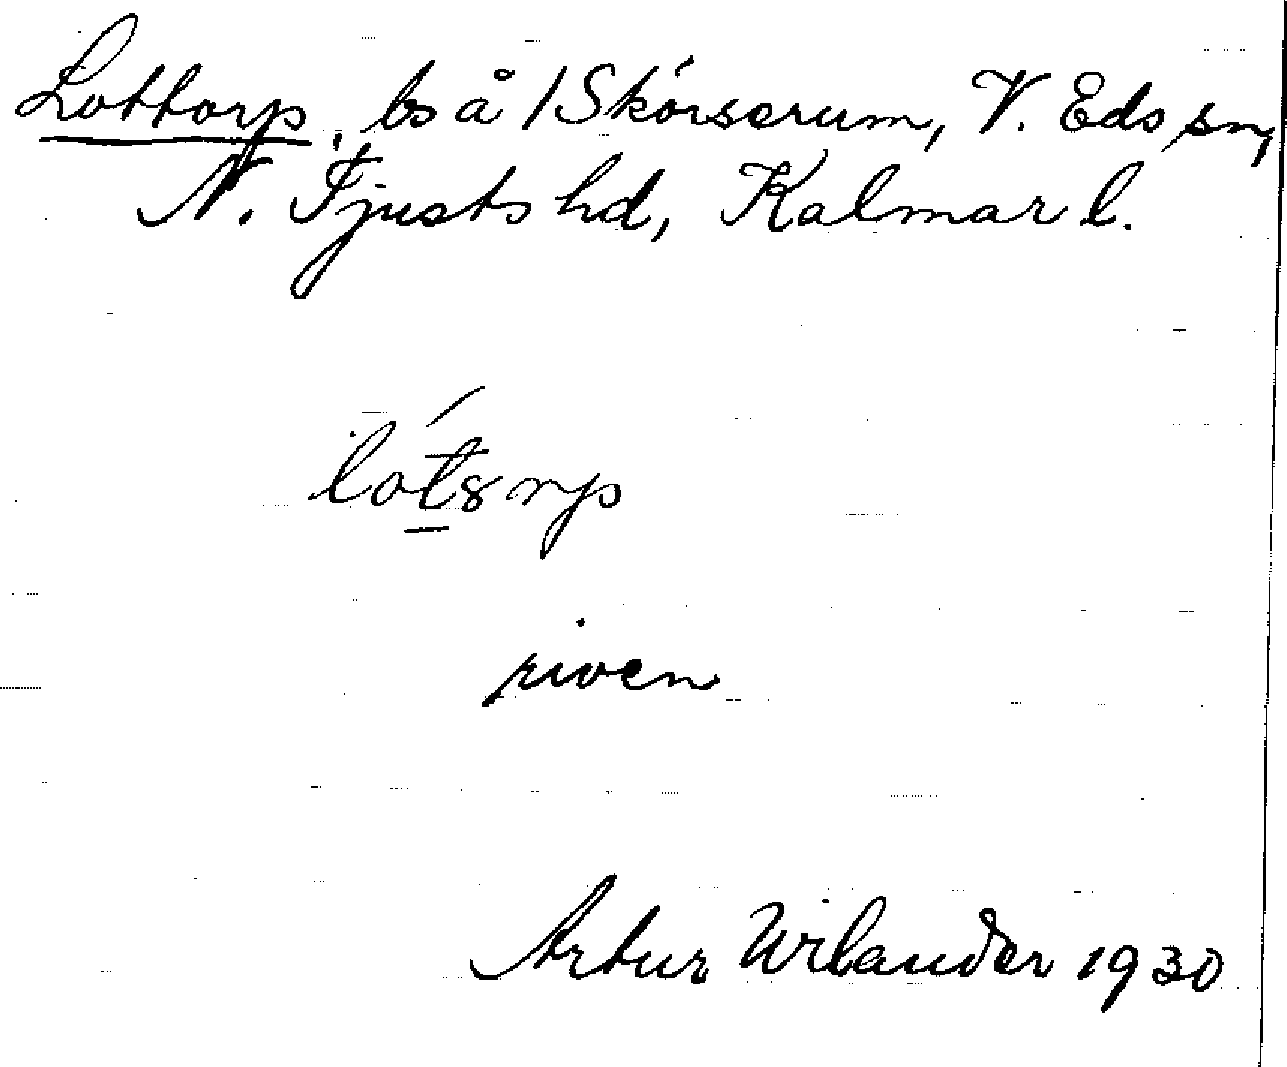 Lottorp, ts å /Skörserum, V. Eds sn,
N. Tjusts hd, Kalmar l.
riven
Artur Wilander 1930